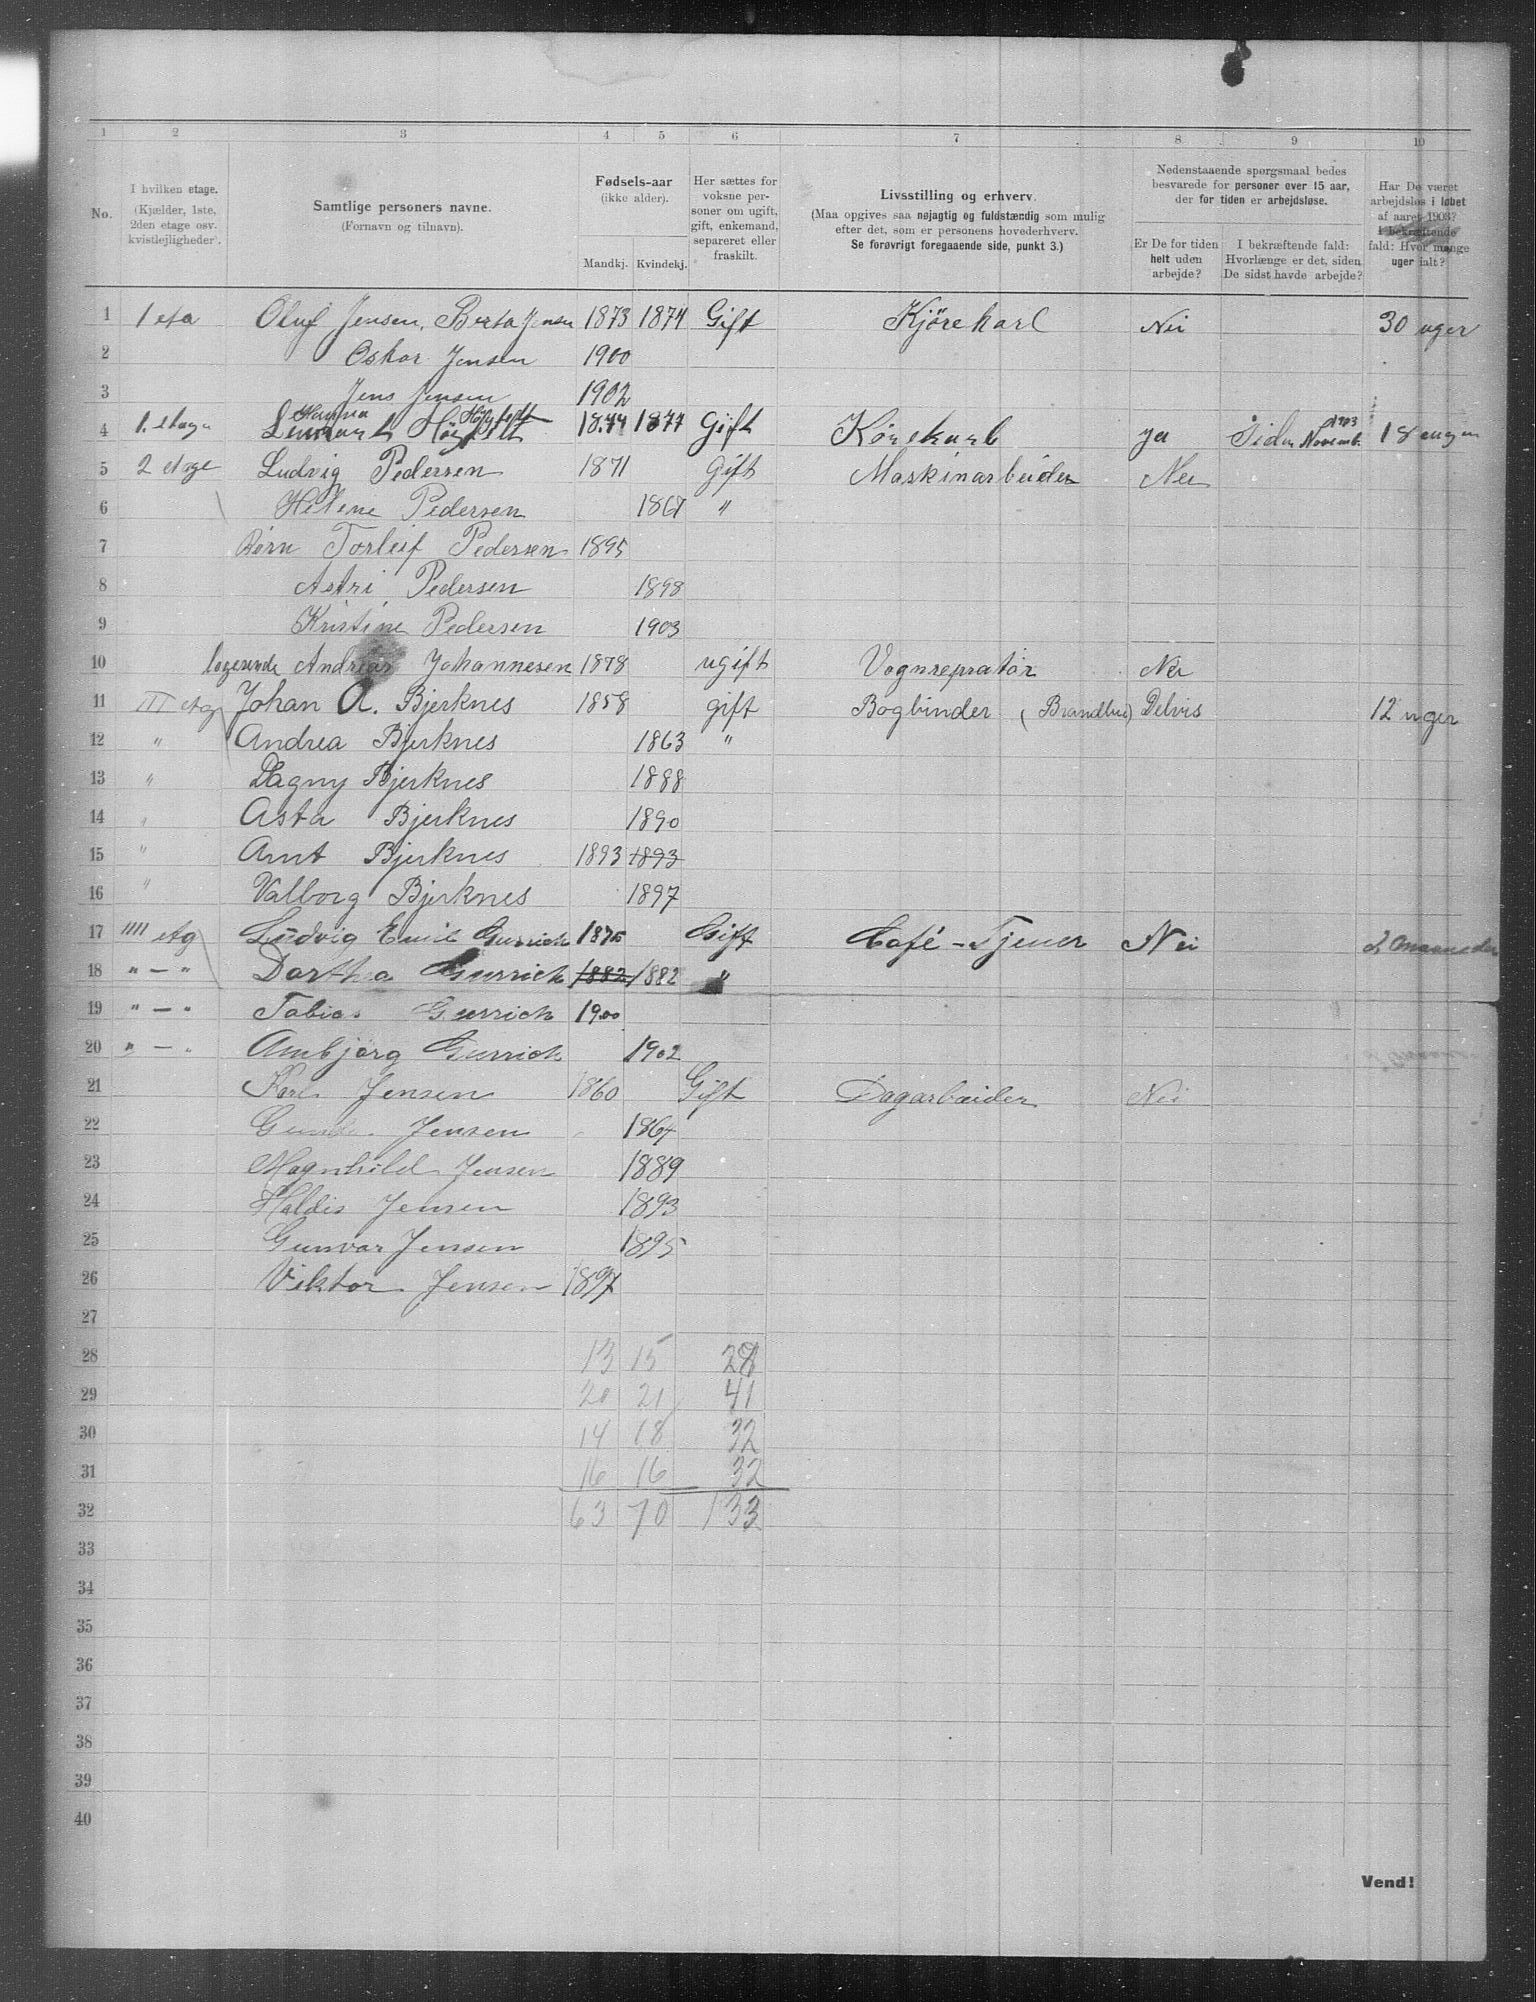 1 2 3 4 5 6 7 8 9 10
No.
I hvilken etage.
(Kjælder, 1ste, 2den etage osv. kvistlejligheder).
Samtlige personers navne.
(Fornavn og tilnavn).
Fødsels-aar
(ikke alder).
Mandkj. Kvindekj.
Her sættes for voksne personer om ugift, gift, enkemand, separeret eller fraskilt.
Livsstilling og erhverv.
(Maa opgives saa nøjagtig og fuldstændig som mulig efter det, som er personens hovederhverv.
Se forøvrigt foregaaende side, punkt 3.)
Nedenstaaende spørgsmaal bedes besvarede for personer over 15 aar, der for tiden er arbejdsløse.
Er De for tiden helt uden arbejde?
I bekræftende fald: Hvorlænge er det, siden De sidst havde arbejde?
Har De været arbejdsløs i løbet af aaret 1903? I bekræftende fald: Hvor mange uger ialt?
1 1 eta Oluf Jensen, Berta Jensen 1873 1874 Gift Kjørekarl Nei 30 uger
2 Oskar Jensen 1900
3 Jens Jensen 1902
4 1. etage 1874 1877 Gift Kørekarl ja Siden Novemb. 1903 18
5 2 etage Ludvig Pedersen 1871 Gift Maskinarbeider Nei
6 Helene Pedersen 1867 "
7 Børn Torleif Pedersen 1895
8 Astri Pedersen 1898
9 Kristine Pedersen 1903
10 logerende Andreas Johannesen 1878 ugift Vognrepratør Nei
11 III etg Johan A. Bjerknes 1858 gift Bogbinder Delvis 12 uger
12 " Andrea Bjerknes 1863 "
13 " Dagny Bjerknes 1888
14 " Asta Bjerknes 1890
15 " Arnt Bjerknes 1893 1893
16 " Valborg Bjerknes 1897
17 IIII etg Ludvig Emil Gurrich 1875 Gift Café-Tjener Nei 2
18 " — " Dorthea Gurrich 1882 1882 "
19 " — " Tobias Gurrich 1900
20 " — " Ambjørg Gurrich 1902
21 Karl Jensen 1860 Gift Dagarbeider Nei
22 Jensen 1864
23 Magnhild Jensen 1889
24 Haldis Jensen 1893
25 Gunvor Jensen 1895
26 Viktor Jensen 1897
27
28 13 15 28
29 20 21 41
30 14 18 32
31 16 16 32
32 63 70 133
33
34
35
36
37
38
39
40
Vend!